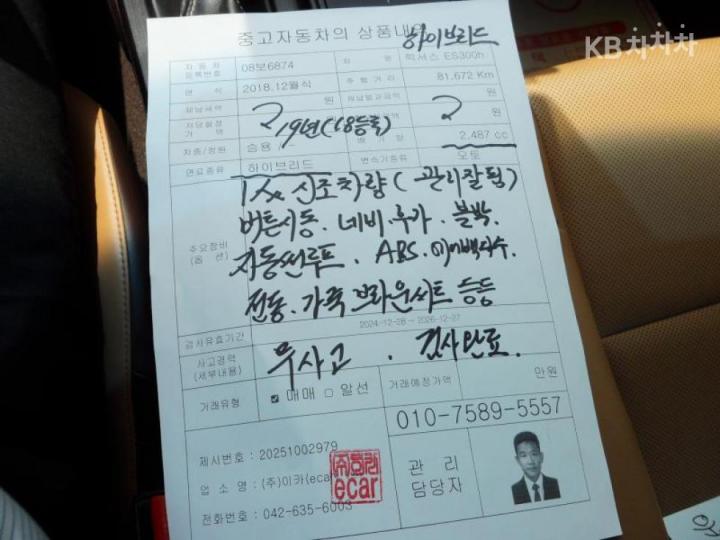 중고자동차의 상품내
하이브리드
KB차차차
자동차 등록번호 08보6874 차 명 렉서스 ES300h
연 식 2018.12월식 주행거리 81,672 Km
체납세액 원 체납범과금액 원
저당설정 가 액 19년( 등록) 2,487 cc
차종/정원 승용 /
연료종류 하이브리드 변속기종류 오토
1인 신조차량( 관리잘됨)
주요장비 (옵 션)
버튼시동. 네비. 후카. 블박.
자동썬루프. ABS.
전동. 가죽 브라운시트 등등
검사유효기간 2024-12-28 ~ 2026-12-27
사고경력 (세부내용) 무사고 . 검사완료.
거래유형 ☑ 매매 □ 알선 거래예정가액 만원
010-7589-5557
제시번호 : 20251002979
업 소 명 : (주)이카(ecar
전화번호 : 042-635-6003
ecar
관 리
담당자